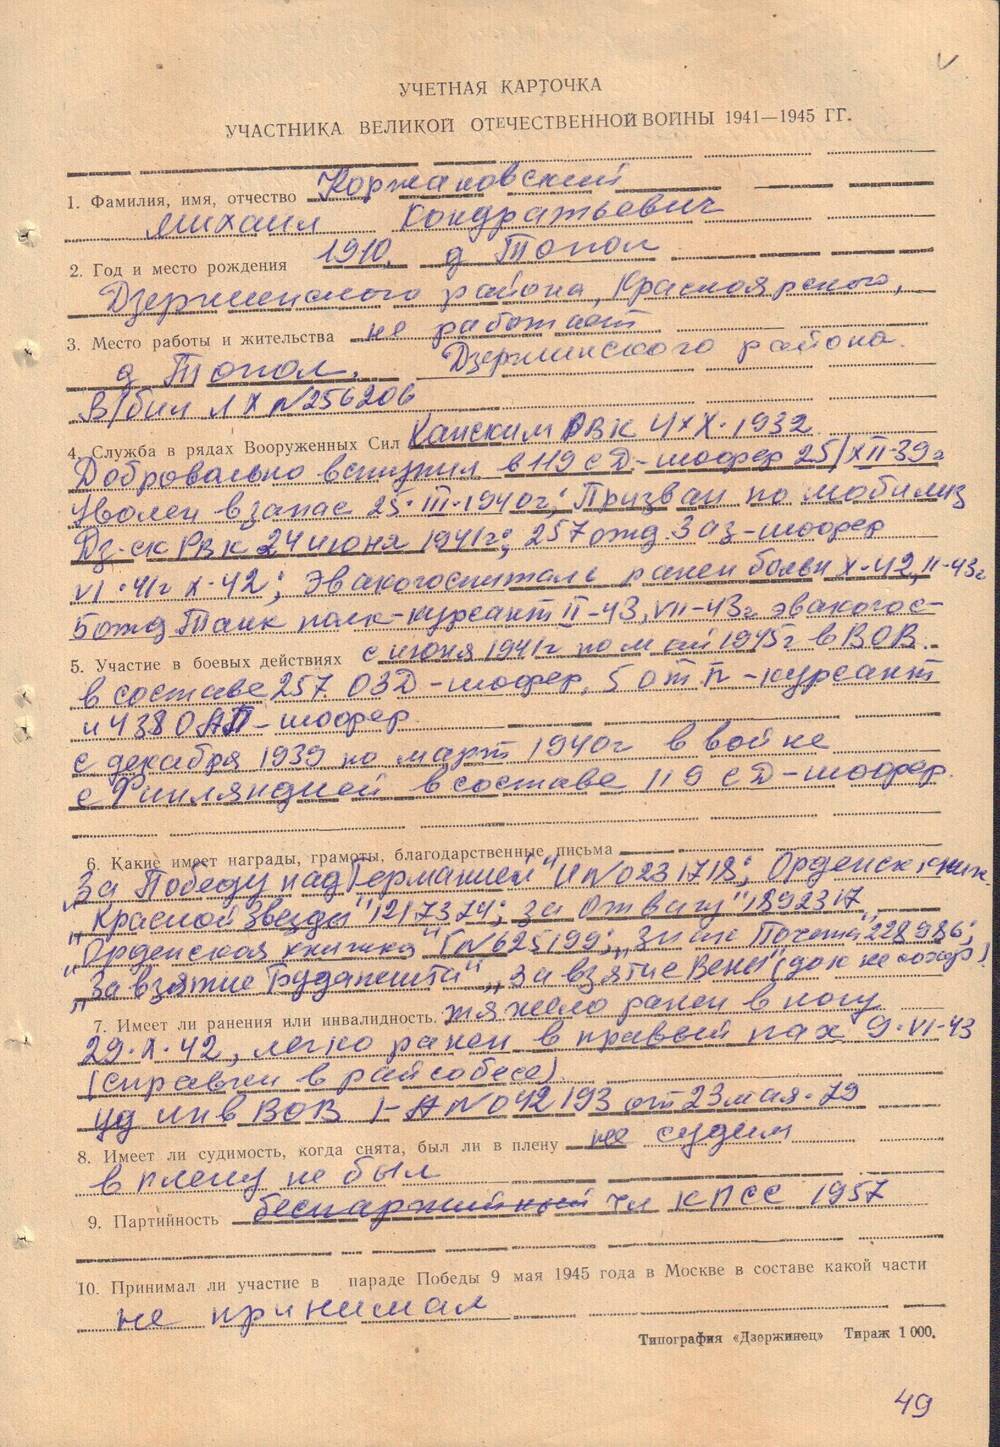 УЧЕТНАЯ КАРТОЧКА
УЧАСТНИКА ВЕЛИКОЙ ОТЕЧЕСТВЕННОЙ ВОЙНЫ 1941—1945 ГГ.
1. Фамилия, имя, отчество Коржановский
Михаил Кондратьевич
2. Год и место рождения 1910, д Топол
Дзержинского района, Красноярского,
3. Место работы и жительства не работает
д Топол, Дзержинского района.
В/бил ЛХ N256206
4. Служба в рядах Вооруженных Сил Канским РВК 1932
Добровально вступил в 119 сД-шофер 25/XII-39г
Уволен в запас 25.III.1940г; Призван по мобилиз
Дз-ск РВК 24 июня 1941г; 257 ожд. Заз-шофер
VI.41г X.42; Эвакогоспиталь ранен больн X-42, II-43г
5 ожд Танк полк-курсант II-43, VII-43г эвакогос-
5. Участие в боевых действиях с июня 1941г по май 1945г в ВОВ.
в составе 257. ОЗД-шофер, 5 от.п-курсант
и 438 ОАП-шофер
с декабря 1939 по март 1940г в войне
с Финляндией в составе 119 сД-шофер.
6. Какие имеет награды, грамоты, благодарственные письма
„За Победу над Германией" И N0231718; Орденск книж.
„Красной Звезды" 1217374; за Отвагу" 1892317
„Орденская книжка" Г N625199; „Знак Почета" 228986;
„За взятие Будапешта" „За взятие Вены" (док не сохр).
7. Имеет ли ранения или инвалидность. тяжело ранен в ногу
29.X.42, легко ранен в правый пах 9.VI-43
(справки в райсобесе)
уд инв ВОВ I-А N042193 от 23 мая.79
8. Имеет ли судимость, когда снята, был ли в плену не судим
в плену не был
9. Партийность беспартийный чл КПСС 1957
10. Принимал ли участие в параде Победы 9 мая 1945 года в Москве в составе какой части
не принимал
Типография «Дзержинец» Тираж 1 000.
49